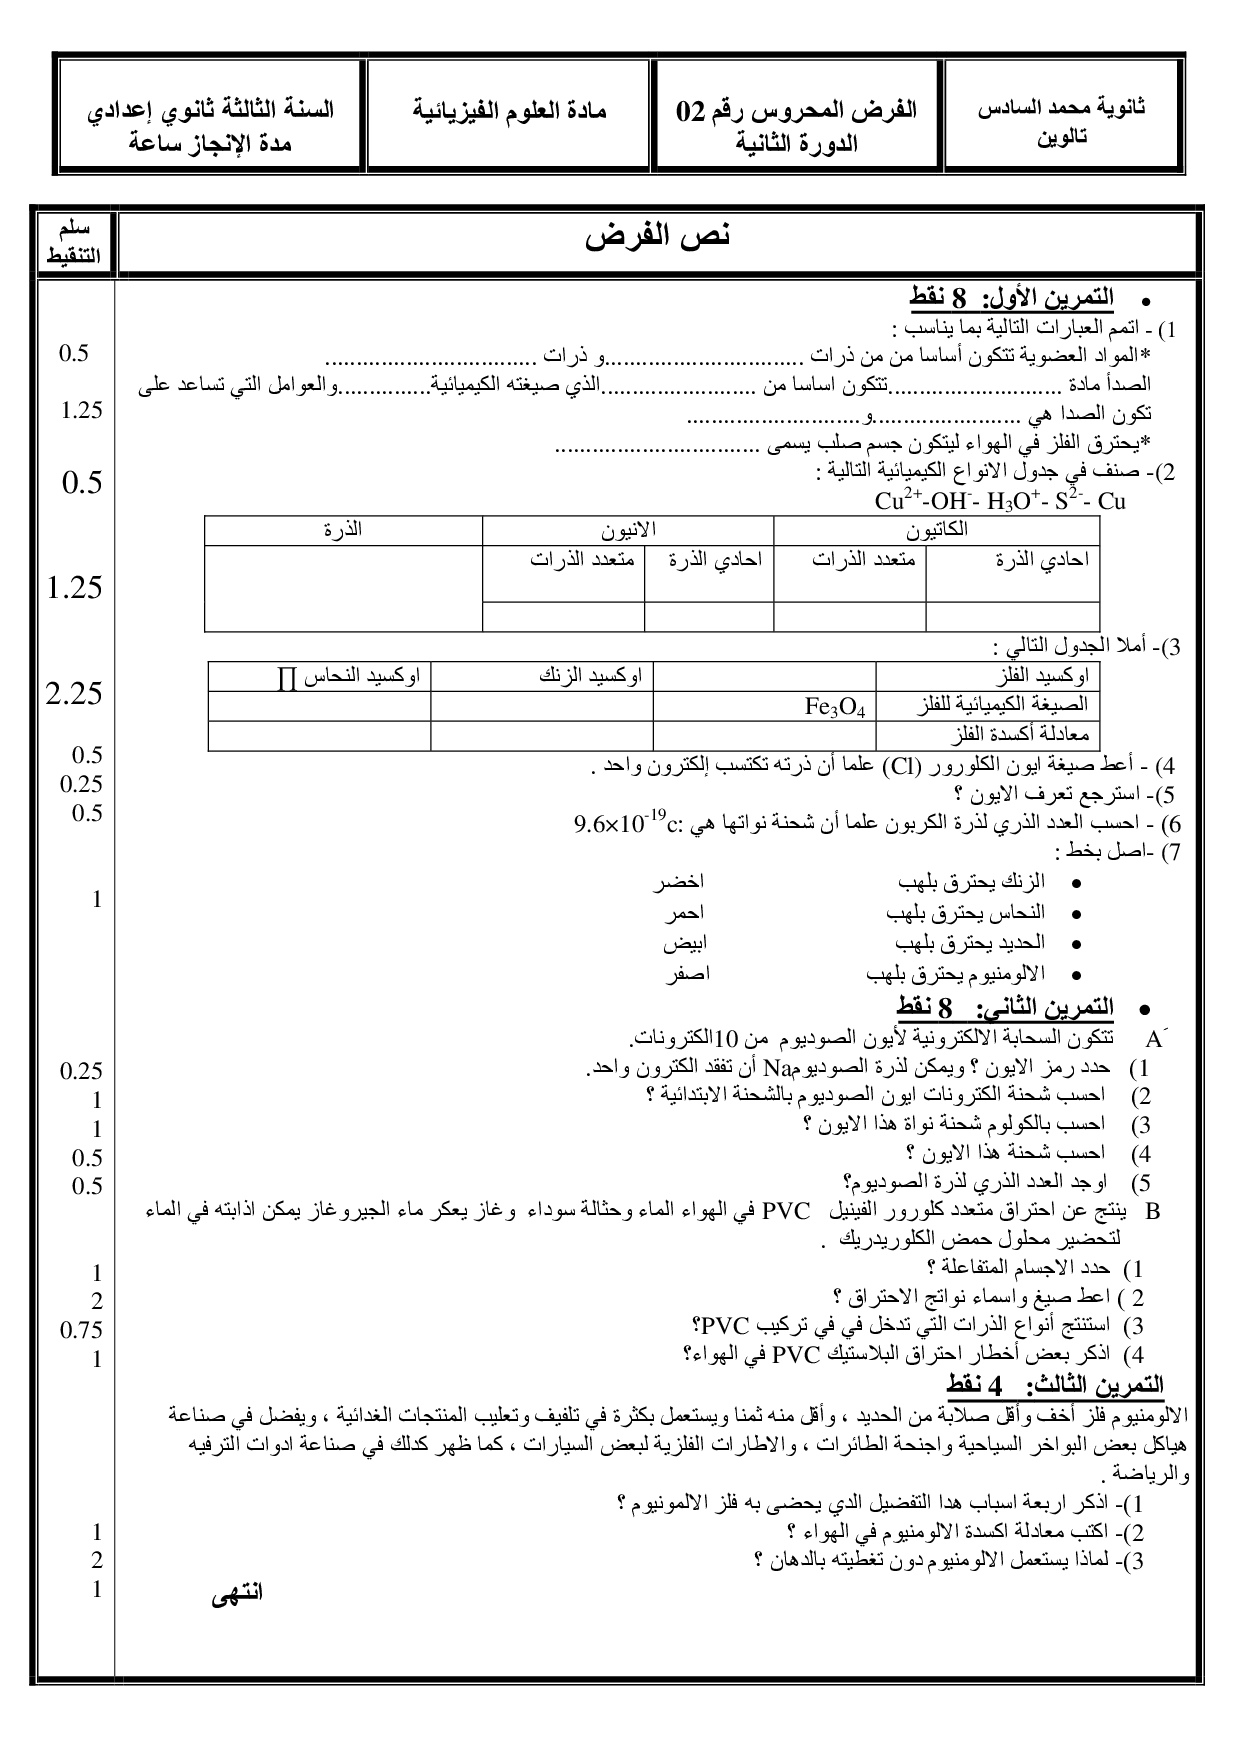 ثانوية محمد السادس
تالوين
الفرض المحروس رقم 02
الدورة الثانية
مادة العلوم الفيزيائية
السنة الثالثة ثانوي إعدادي
مدة الإنجاز ساعة
نص الفرض
سلم
التنقيط
• التمرين الأول: 8 نقط
1) - اتمم العبارات التالية بما يناسب :
0.5
*المواد العضوية تتكون أساسا من من ذرات ................................و ذرات ..................................
الصدأ مادة ............................تتكون اساسا من .........................الذي صيغته الكيميائية...............والعوامل التي تساعد على
1.25
تكون الصدا هي ........................و............................
*يحترق الفلز في الهواء ليتكون جسم صلب يسمى .................................
0.5
2)- صنف في جدول الانواع الكيميائية التالية :
Cu²⁺-OH⁻- H₃O⁺- S²⁻- Cu
الكاتيون الانيون الذرة
احادي الذرة متعدد الذرات احادي الذرة متعدد الذرات
1.25
3)- أملا الجدول التالي :
اوكسيد الفلز اوكسيد الزنك اوكسيد النحاس ∏
2.25
الصيغة الكيميائية للفلز Fe₃O₄
معادلة أكسدة الفلز
0.5
4) - أعط صيغة ايون الكلورور (Cl) علما أن ذرته تكتسب إلكترون واحد .
0.25
5)- استرجع تعرف الايون ؟
0.5
6) - احسب العدد الذري لذرة الكربون علما أن شحنة نواتها هي :9.6×10⁻¹⁹c
7) -اصل بخط :
• الزنك يحترق بلهب اخضر
1
• النحاس يحترق بلهب احمر
• الحديد يحترق بلهب ابيض
• الالومنيوم يحترق بلهب اصفر
• التمرين الثاني: 8 نقط
A⁻ تتكون السحابة الالكترونية لأيون الصوديوم من 10الكترونات.
0.25
1) حدد رمز الايون ؟ ويمكن لذرة الصوديومNa أن تفقد الكترون واحد.
1
2) احسب شحنة الكترونات ايون الصوديوم بالشحنة الابتدائية ؟
1
3) احسب بالكولوم شحنة نواة هذا الايون ؟
0.5
4) احسب شحنة هذا الايون ؟
0.5
5) اوجد العدد الذري لذرة الصوديوم؟
B ينتج عن احتراق متعدد كلورور الفينيل PVC في الهواء الماء وحثالة سوداء وغاز يعكر ماء الجيروغاز يمكن اذابته في الماء
لتحضير محلول حمض الكلوريدريك .
1
1) حدد الاجسام المتفاعلة ؟
2
2 ) اعط صيغ واسماء نواتج الاحتراق ؟
0.75
3) استنتج أنواع الذرات التي تدخل في في تركيب PVC؟
1
4) اذكر بعض أخطار احتراق البلاستيك PVC في الهواء؟
التمرين الثالث: 4 نقط
الالومنيوم فلز أخف وأقل صلابة من الحديد ، وأقل منه ثمنا ويستعمل بكثرة في تلفيف وتعليب المنتجات الغدائية ، ويفضل في صناعة
هياكل بعض البواخر السياحية واجنحة الطائرات ، والاطارات الفلزية لبعض السيارات ، كما ظهر كدلك في صناعة ادوات الترفيه
والرياضة .
1)- اذكر اربعة اسباب هدا التفضيل الدي يحضى به فلز الالمونيوم ؟
1
2)- اكتب معادلة اكسدة الالومنيوم في الهواء ؟
2
3)- لماذا يستعمل الالومنيوم دون تغطيته بالدهان ؟
1
انتهى